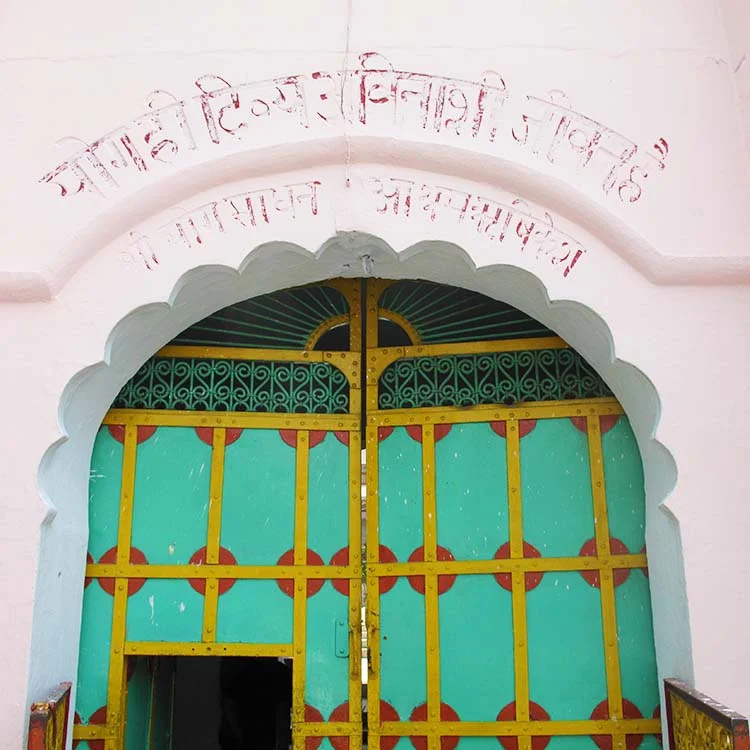 योग ही दिव्य अविनाशी जीवन है
श्री योग साधन आश्रम ऋषिकेश